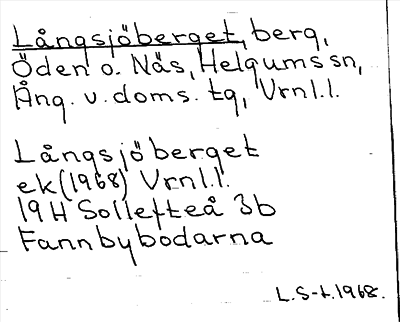 Långsjöberget, berg,
Öden o. Näs, Helgums sn,
Ång. v. doms. tg, Vrnl.l.
Långsjöberget
ek (1968) Vrnl.l.
19H Sollefteå 3b
Fannbybodarna
L.S-t. 1968.